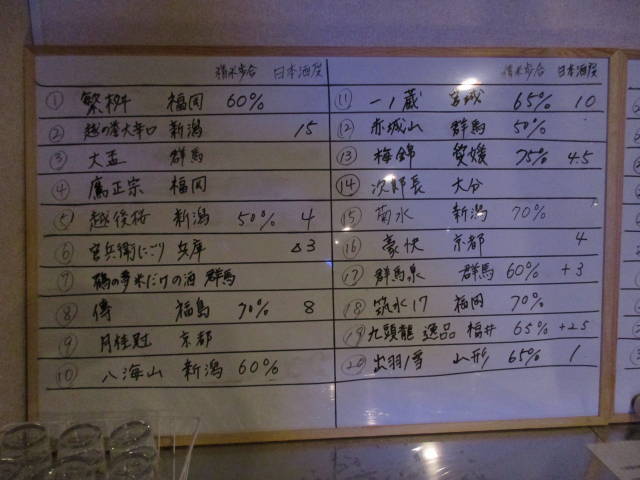 精米歩合 日本酒度
① 繁桝 福岡 60%
② 越の誉大辛口 新潟 15
③ 大盃 群馬
④ 鷹正宗 福岡
⑤ 越後桜 新潟 50% 4
⑥ 官兵衛にごり 兵庫 △3
⑦ 鶴の夢米だけの酒 群馬
⑧ 傳 福島 70% 8
⑨ 月桂冠 京都
⑩ 八海山 新潟 60%
精米歩合 日本酒度
⑪ 一ノ蔵 宮城 65% 10
⑫ 赤城山 群馬 50%
⑬ 梅錦 愛媛 75% 4.5
⑭ 次郎長 大分
⑮ 菊水 新潟 70%
⑯ 豪快 京都 4
⑰ 群馬泉 群馬 60% +3
⑱ 筑水17 福岡 70%
⑲ 九頭龍 逸品 福井 65% +2.5
⑳ 出羽ノ雪 山形 65% 1